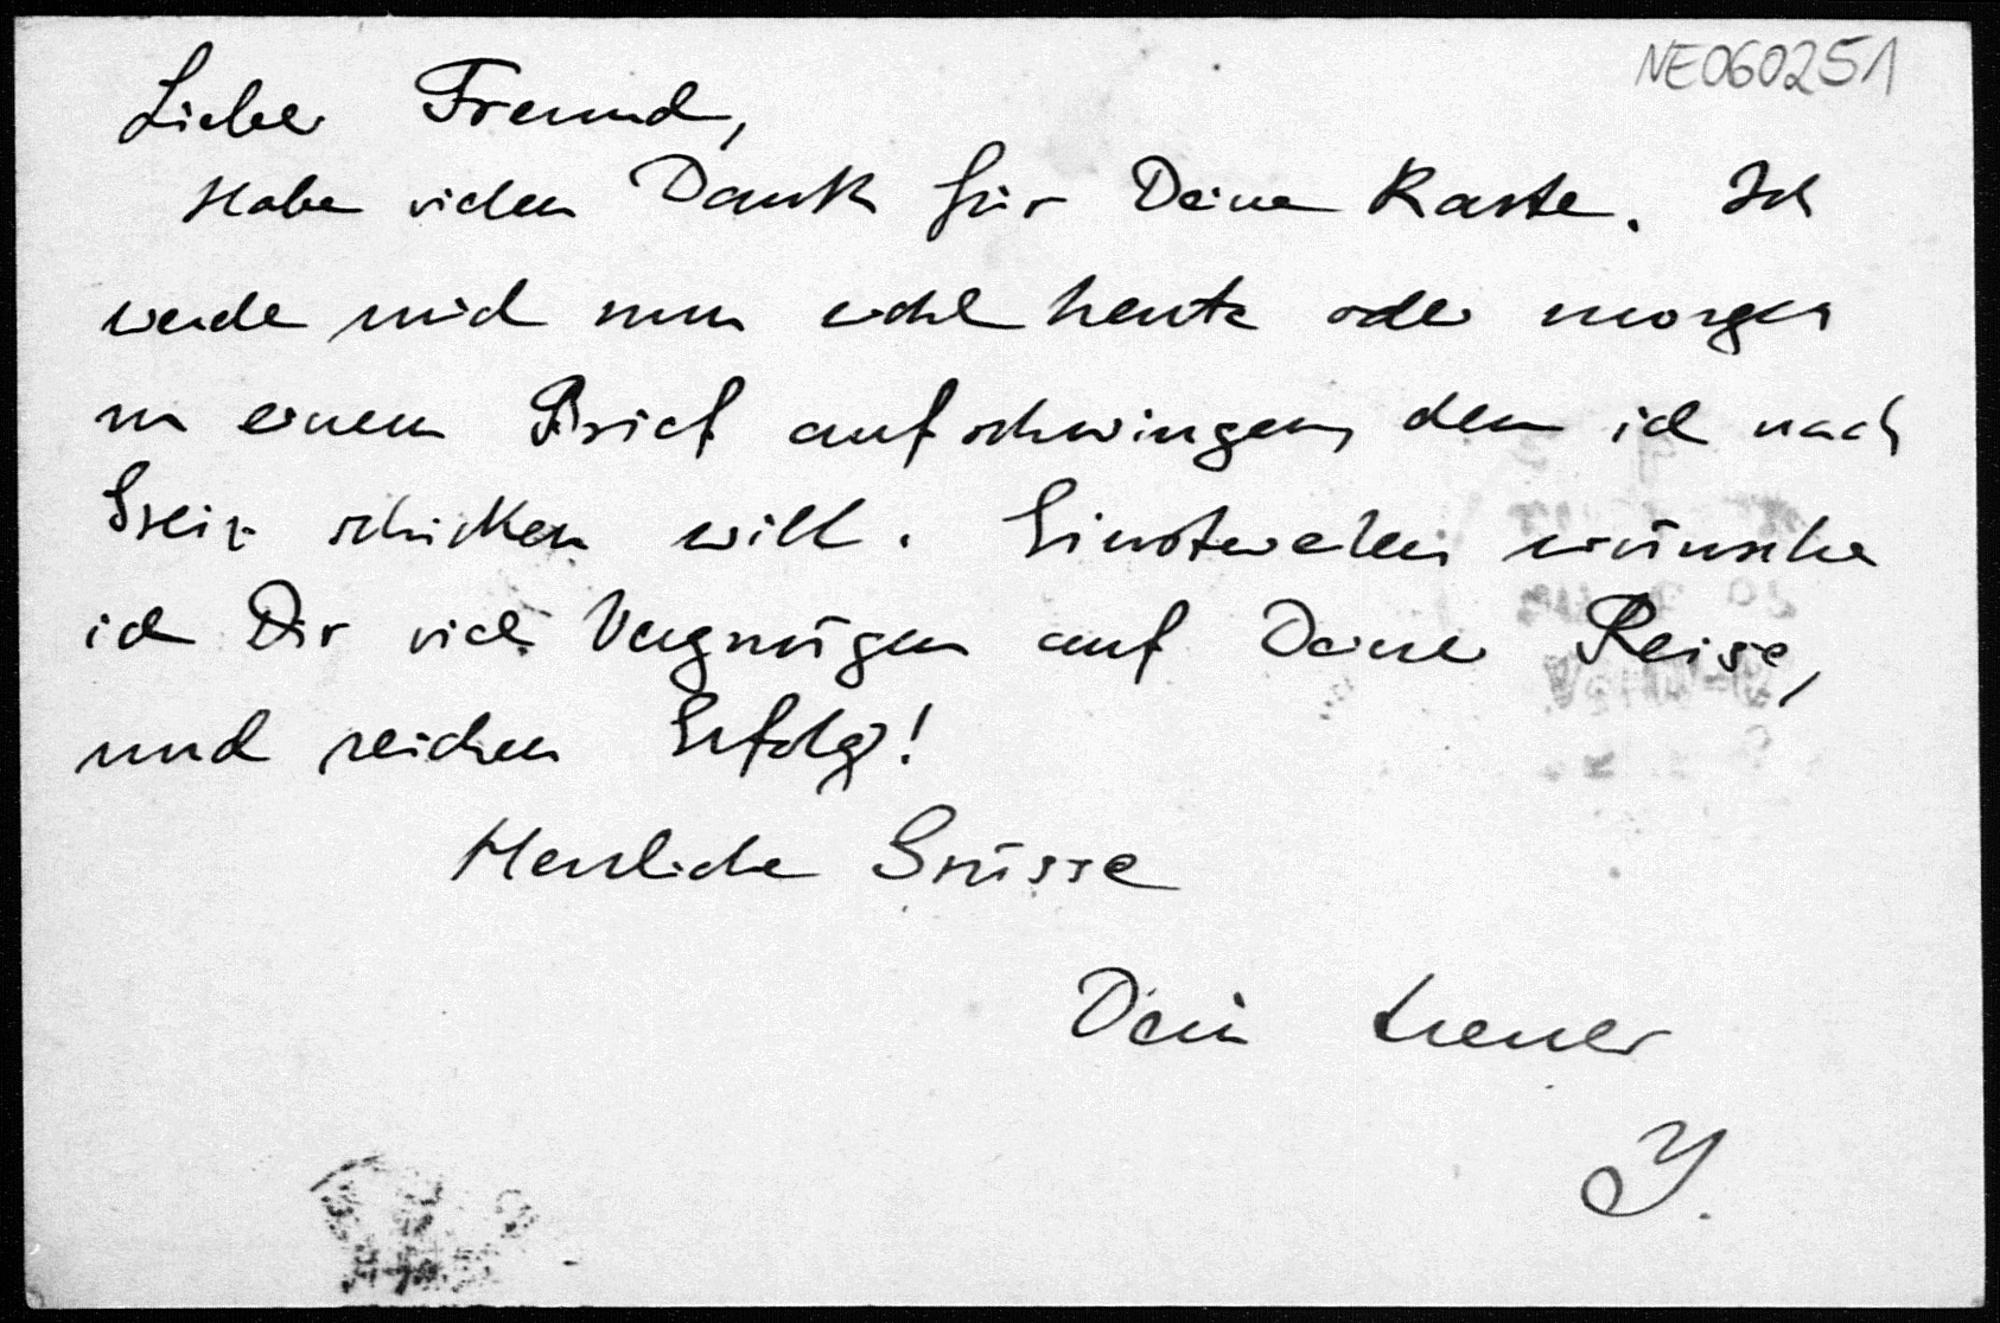 NE060251
Lieber Freund,
Habe vielen Dank für Deine Karte. Ich
werde mich nun wohl heute oder morgen
zu einem Brief aufschwingen, den ich nach
schicken will. Einstweilen wünsche
ich Dir viel Vergnügen auf Deiner Reise,
und reichen Erfolg!
Herzliche Grüsse
Dein treuer
Y.